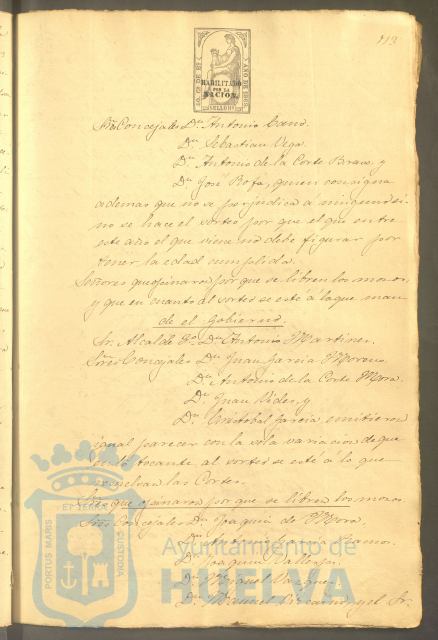 113
HABILITADO
POR LA
NACION.
AÑO DE 1869
Sres Concejales Dn Antonio Cano.
Dn Sebastian Vega.
Dn Antonio de la Corte Bravo, y
Dn José Bofa, quien consigna
ademas que no se perjudica á ninguno si
no se hace el sorteo por que el que entre
este año el que viene no debe figurar por
tener la edad cumplida.
Señores que opinaron por que se libren los mozos,
y que en cuanto al sorteo se esté á lo que man
de el Gobierno.
Sr. Alcalde 2o Dn Antonio Martinez.
Sres Concejales Dn Juan Garcia Moreno
Dn Antonio de la Corte Mora.
Dn Juan y
Dn Cristobal Garcia, emitieron
igual parecer con la sola variacion de que
tocante al sorteo se esté á lo que
resuelvan las Cortes.
Sres que opinaron por que se libren los mozos
Sres Concejales Dn Joaquin de Mora.
Dn Antonio Garcia Ramos.
Dn Joaquin Vallejo.
Dn Manuel Vazquez
Dn Manuel y el Sr.
PORTUS MARIS
ET TERRÆ
CUSTODIA
Ayuntamiento de
HUELVA